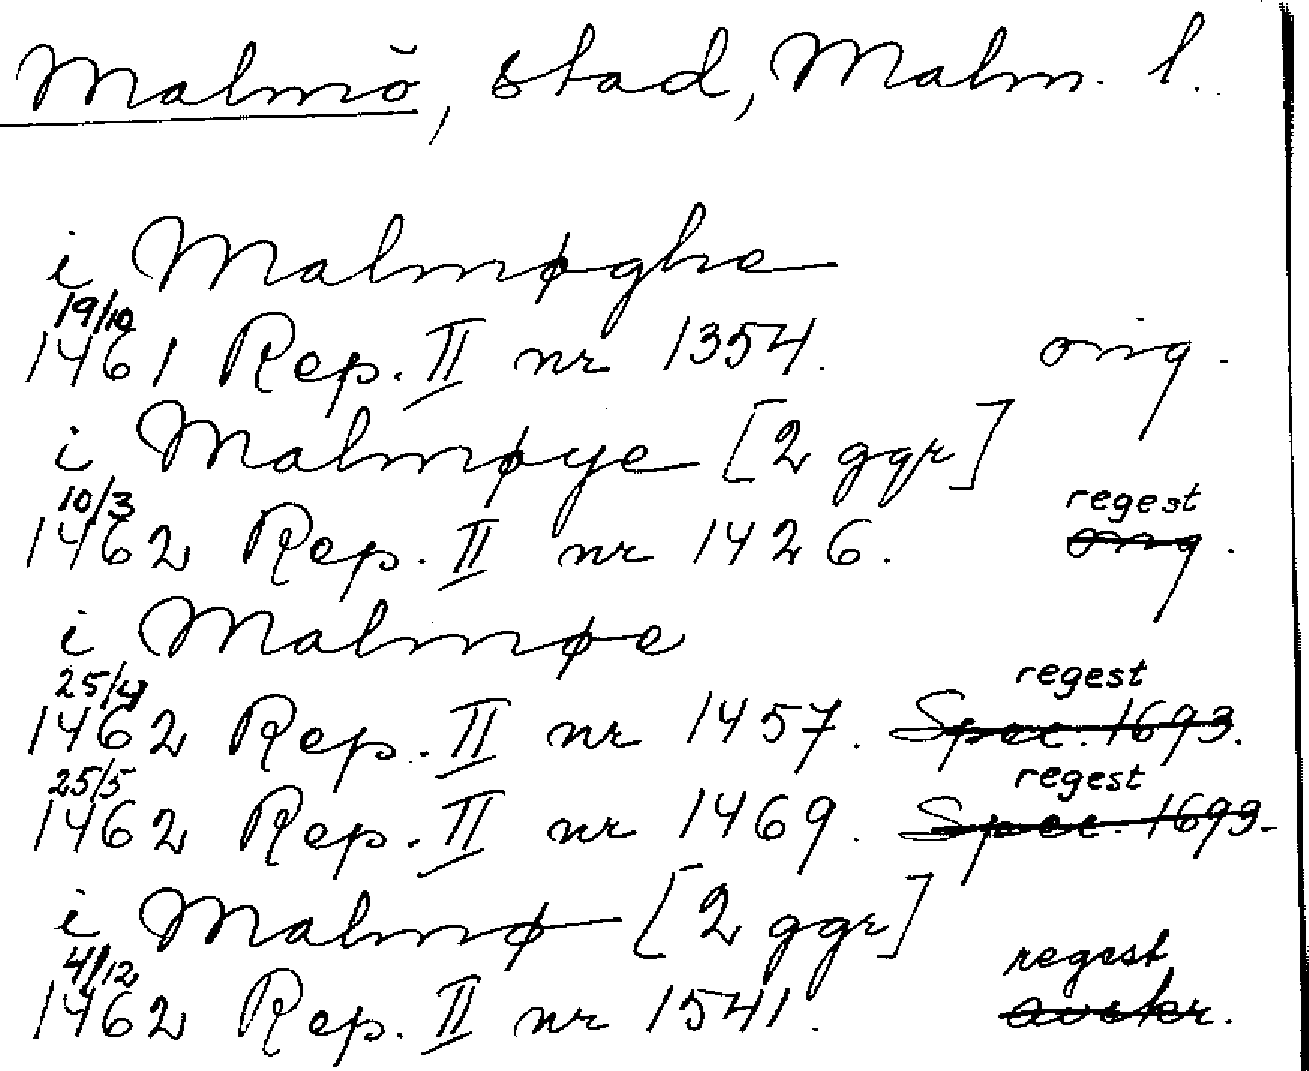 Malmö, stad, Malm. l.
i Malmøghe
19/10
1461 Rep. II nr 1354. orig.
i Malmøye [2 ggr]
10/3 regest
1462 Rep. II nr 1426. orig.
i Malmøe
25/4 regest
1462 Rep. II nr 1457. Spec. 1693.
25/5 regest
1462 Rep. II nr 1469. Spec. 1693.
i Malmø [2 ggr]
4/12 regest
1462 Rep. II nr 1541. avskr.